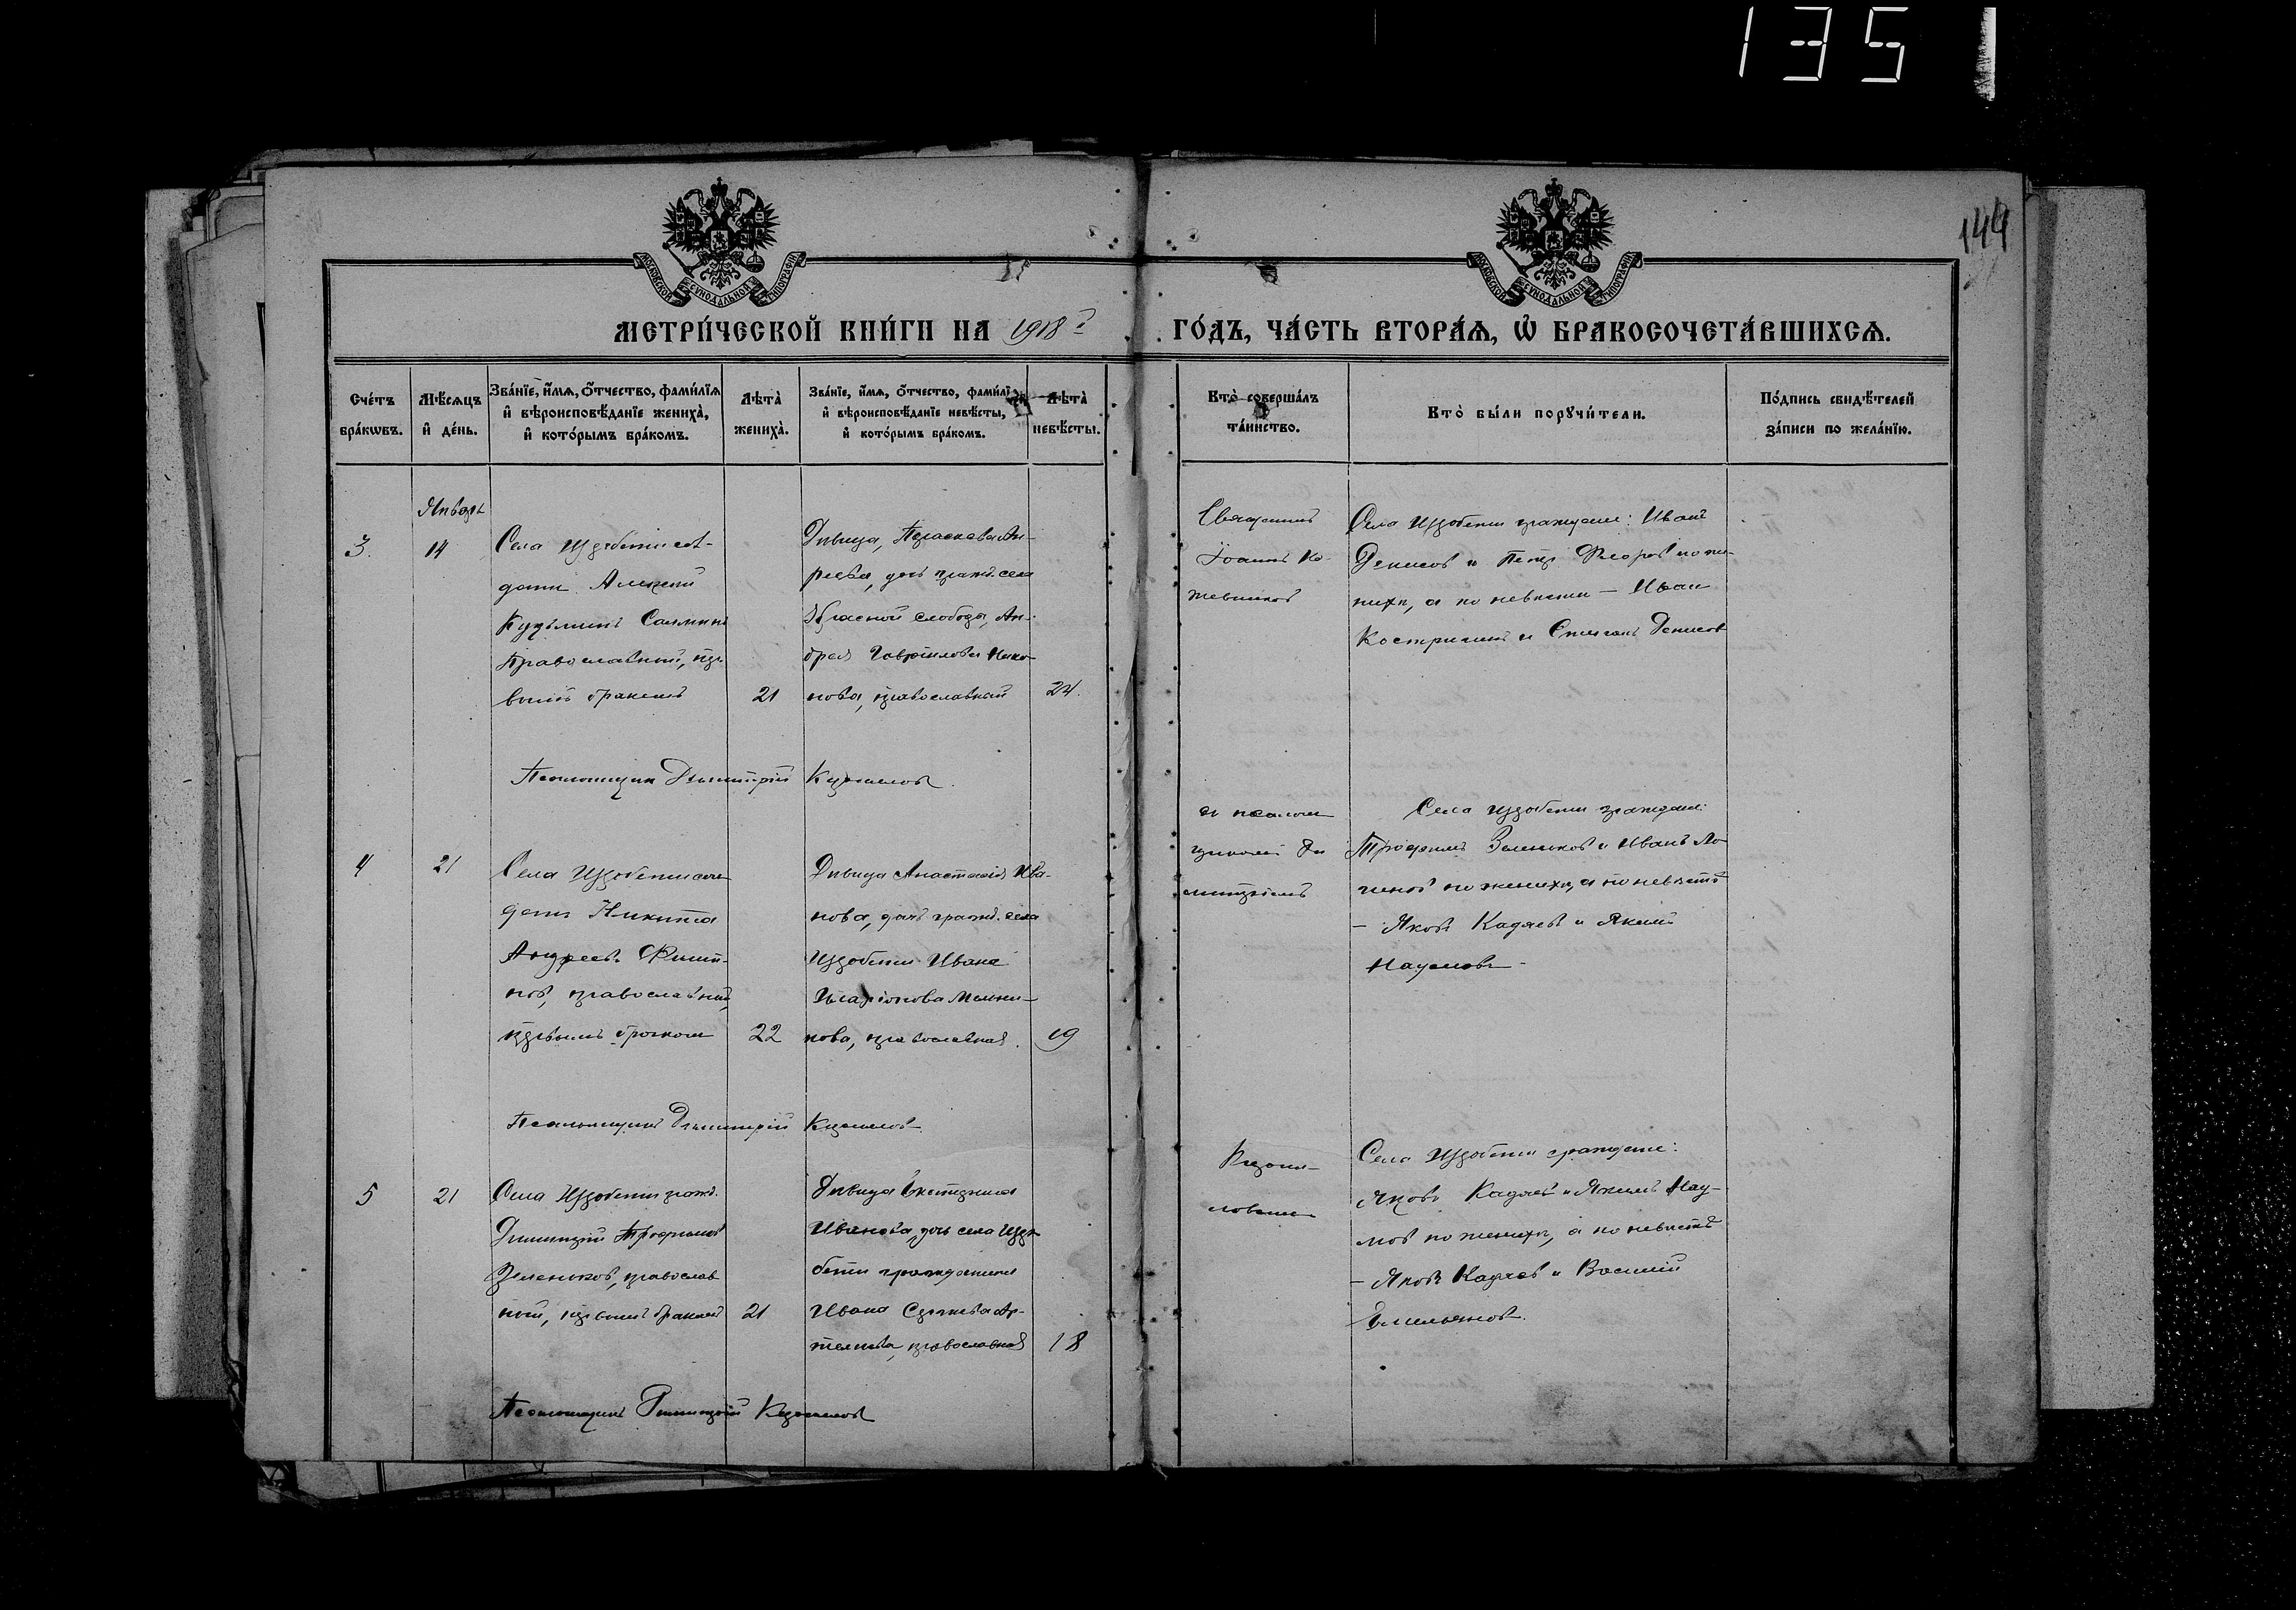 1351
144
МОСКОВСКОЙ СУНОДАЛЬНОЙ ТИПОГРАФІИ
МОСКОВСКОЙ СУНОДАЛЬНОЙ ТИПОГРАФІИ
МЕТРИ́ЧЕСКОЙ КНИ́ГИ НА 1918 й ГО́ДЪ, ЧА́СТЬ ВТОРА́Я, Ѡ҆ БРАКОСОЧЕТА́ВШИХСЯ.
Сче́тъ бра́кѡвъ.
Мѣ́сяцъ и҆ де́нь.
Зва́нїе, и҆́мя, о҆́тчество, фами́лїя
и҆ вѣроисповѣ́данїе жениха̀,
и҆ кото́рымъ бра́комъ.
Лѣта̀ жениха̀.
Зва́нїе, и҆́мя, о҆́тчество, фами́лїя
и҆ вѣроисповѣ́данїе невѣ́сты,
и҆ кото́рымъ бра́комъ.
Лѣта̀ невѣ́сты.
Кто̀ соверша́лъ та́инство.
Кто̀ бы́ли порꙋчи́тели.
По́дпись свидѣ́телей
за́писи по жела́нїю.
Январь
3. 14
Села Издебти сол-
датъ Алексей
Кузьминъ
Православный, пер-
вымъ бракомъ
21
Дѣвица, Параскева Ан-
дреева, дочь гражд. села
Красной слободы, Ан-
дрея Гаврилова Нико-
нова, православная
24.
Священникъ
Іоаннъ Ко-
жевников
Села граждане: Иванъ
Денисов и Петр Федоров по же-
нихѣ, а по невѣсти – Иван
Костригинъ и Степанъ Денисов
Псаломщик Димитрій
4 21
Села
датъ Никита
Андреевъ Филип-
пов, православный,
первымъ браком
22
Дѣвица Анастасія Ива-
нова, дочь гражд. села
Ивана
Иларіонова Мельни-
кова, православная.
19
съ псалом-
щиком Ди-
митріемъ
Села граждане:
Трофимъ Зеленков и Иванъ Ло-
гинов по женихѣ, а по невѣстѣ
– Яковъ Кадяев и Якимъ
Наумовъ.
Псаломщикъ Димитрій
5 21
Села гражд.
Димитрій Трофимов
Зеленков, православ-
ный, первымъ бракомъ
21
Дѣвица Екатерина
Иванова, дочь села
гражданина
Ивана Сергеева Ар-
темьева, православная
18
Села граждане:
Яковъ Кадяев и Якимъ Нау-
мов по женихѣ, а по невѣстѣ
– Яковъ Кадяев и Василій
Емельянов.
Псаломщикъ Димитрій